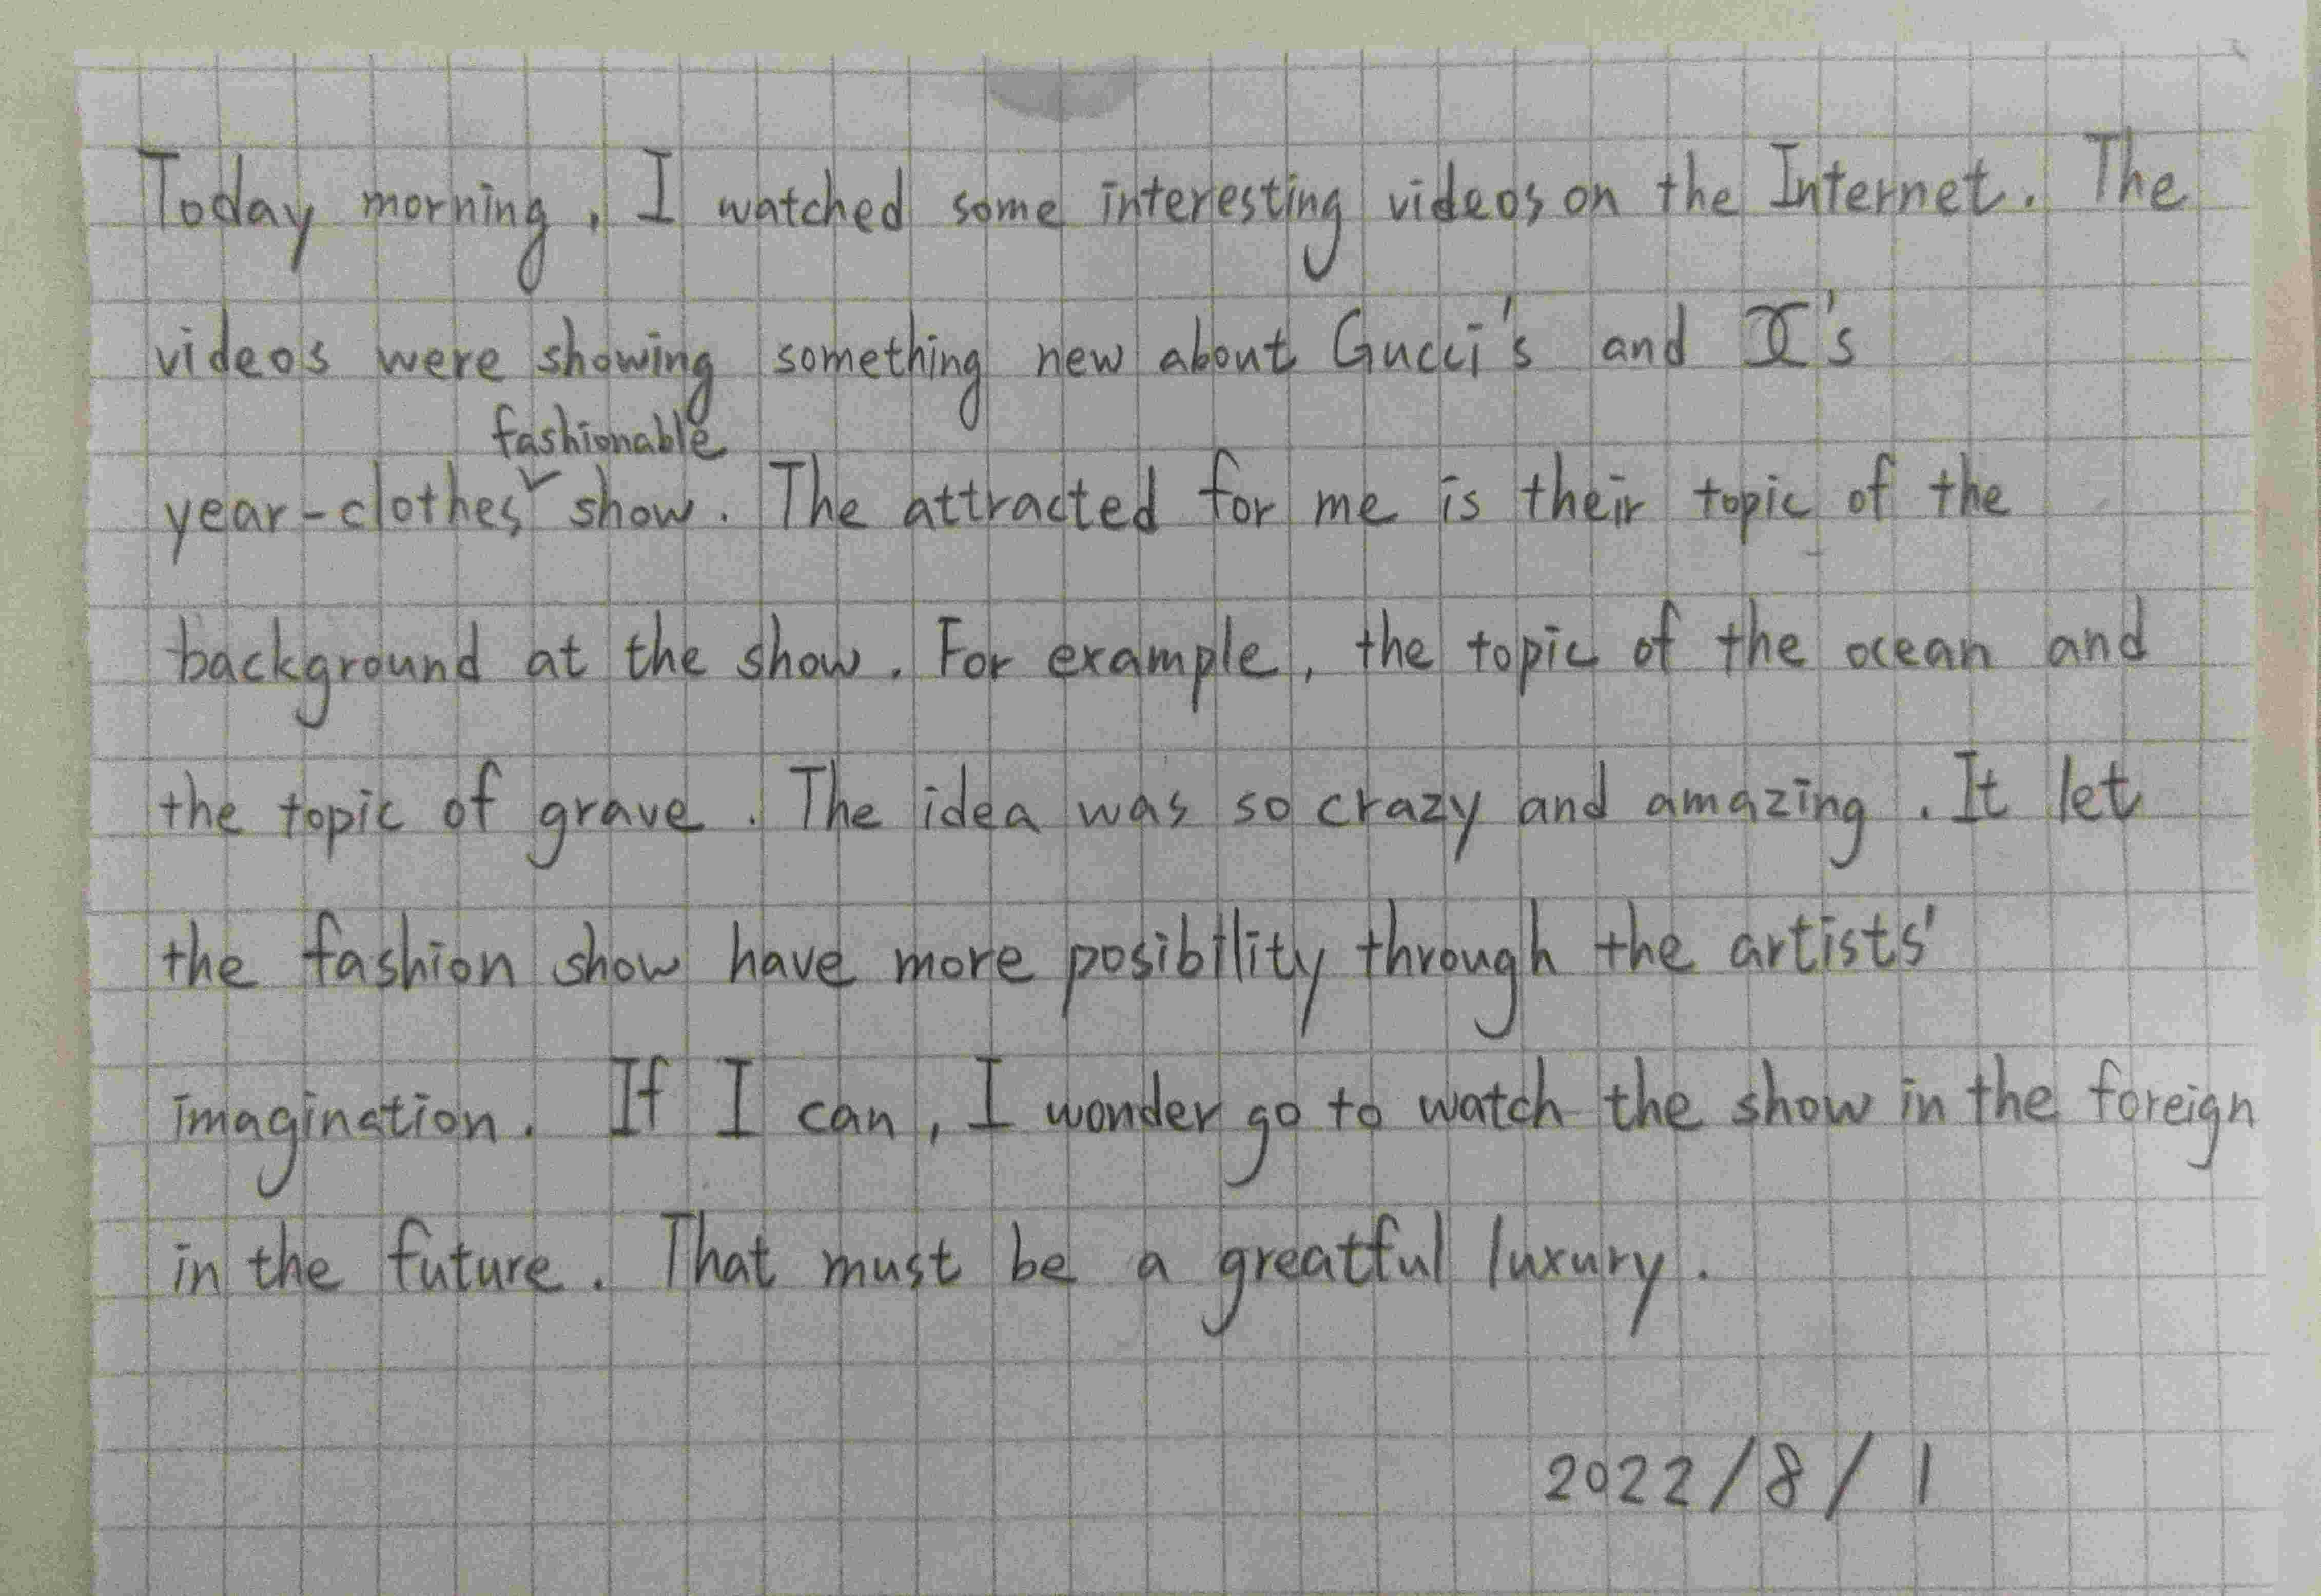 Today morning, I watched some interesting videos on the Internet. The
videos were showing something new about Gucci's and 's
fashionable
year-clothes show. The attracted for me is their topic of the
background at the show. For example, the topic of the ocean and
the topic of grave. The idea was so crazy and amazing. It let
the fashion show have more posibility through the artists'
imagination. If I can, I wonder go to watch the show in the foreign
in the future. That must be a greatful luxury.
2022/8/1